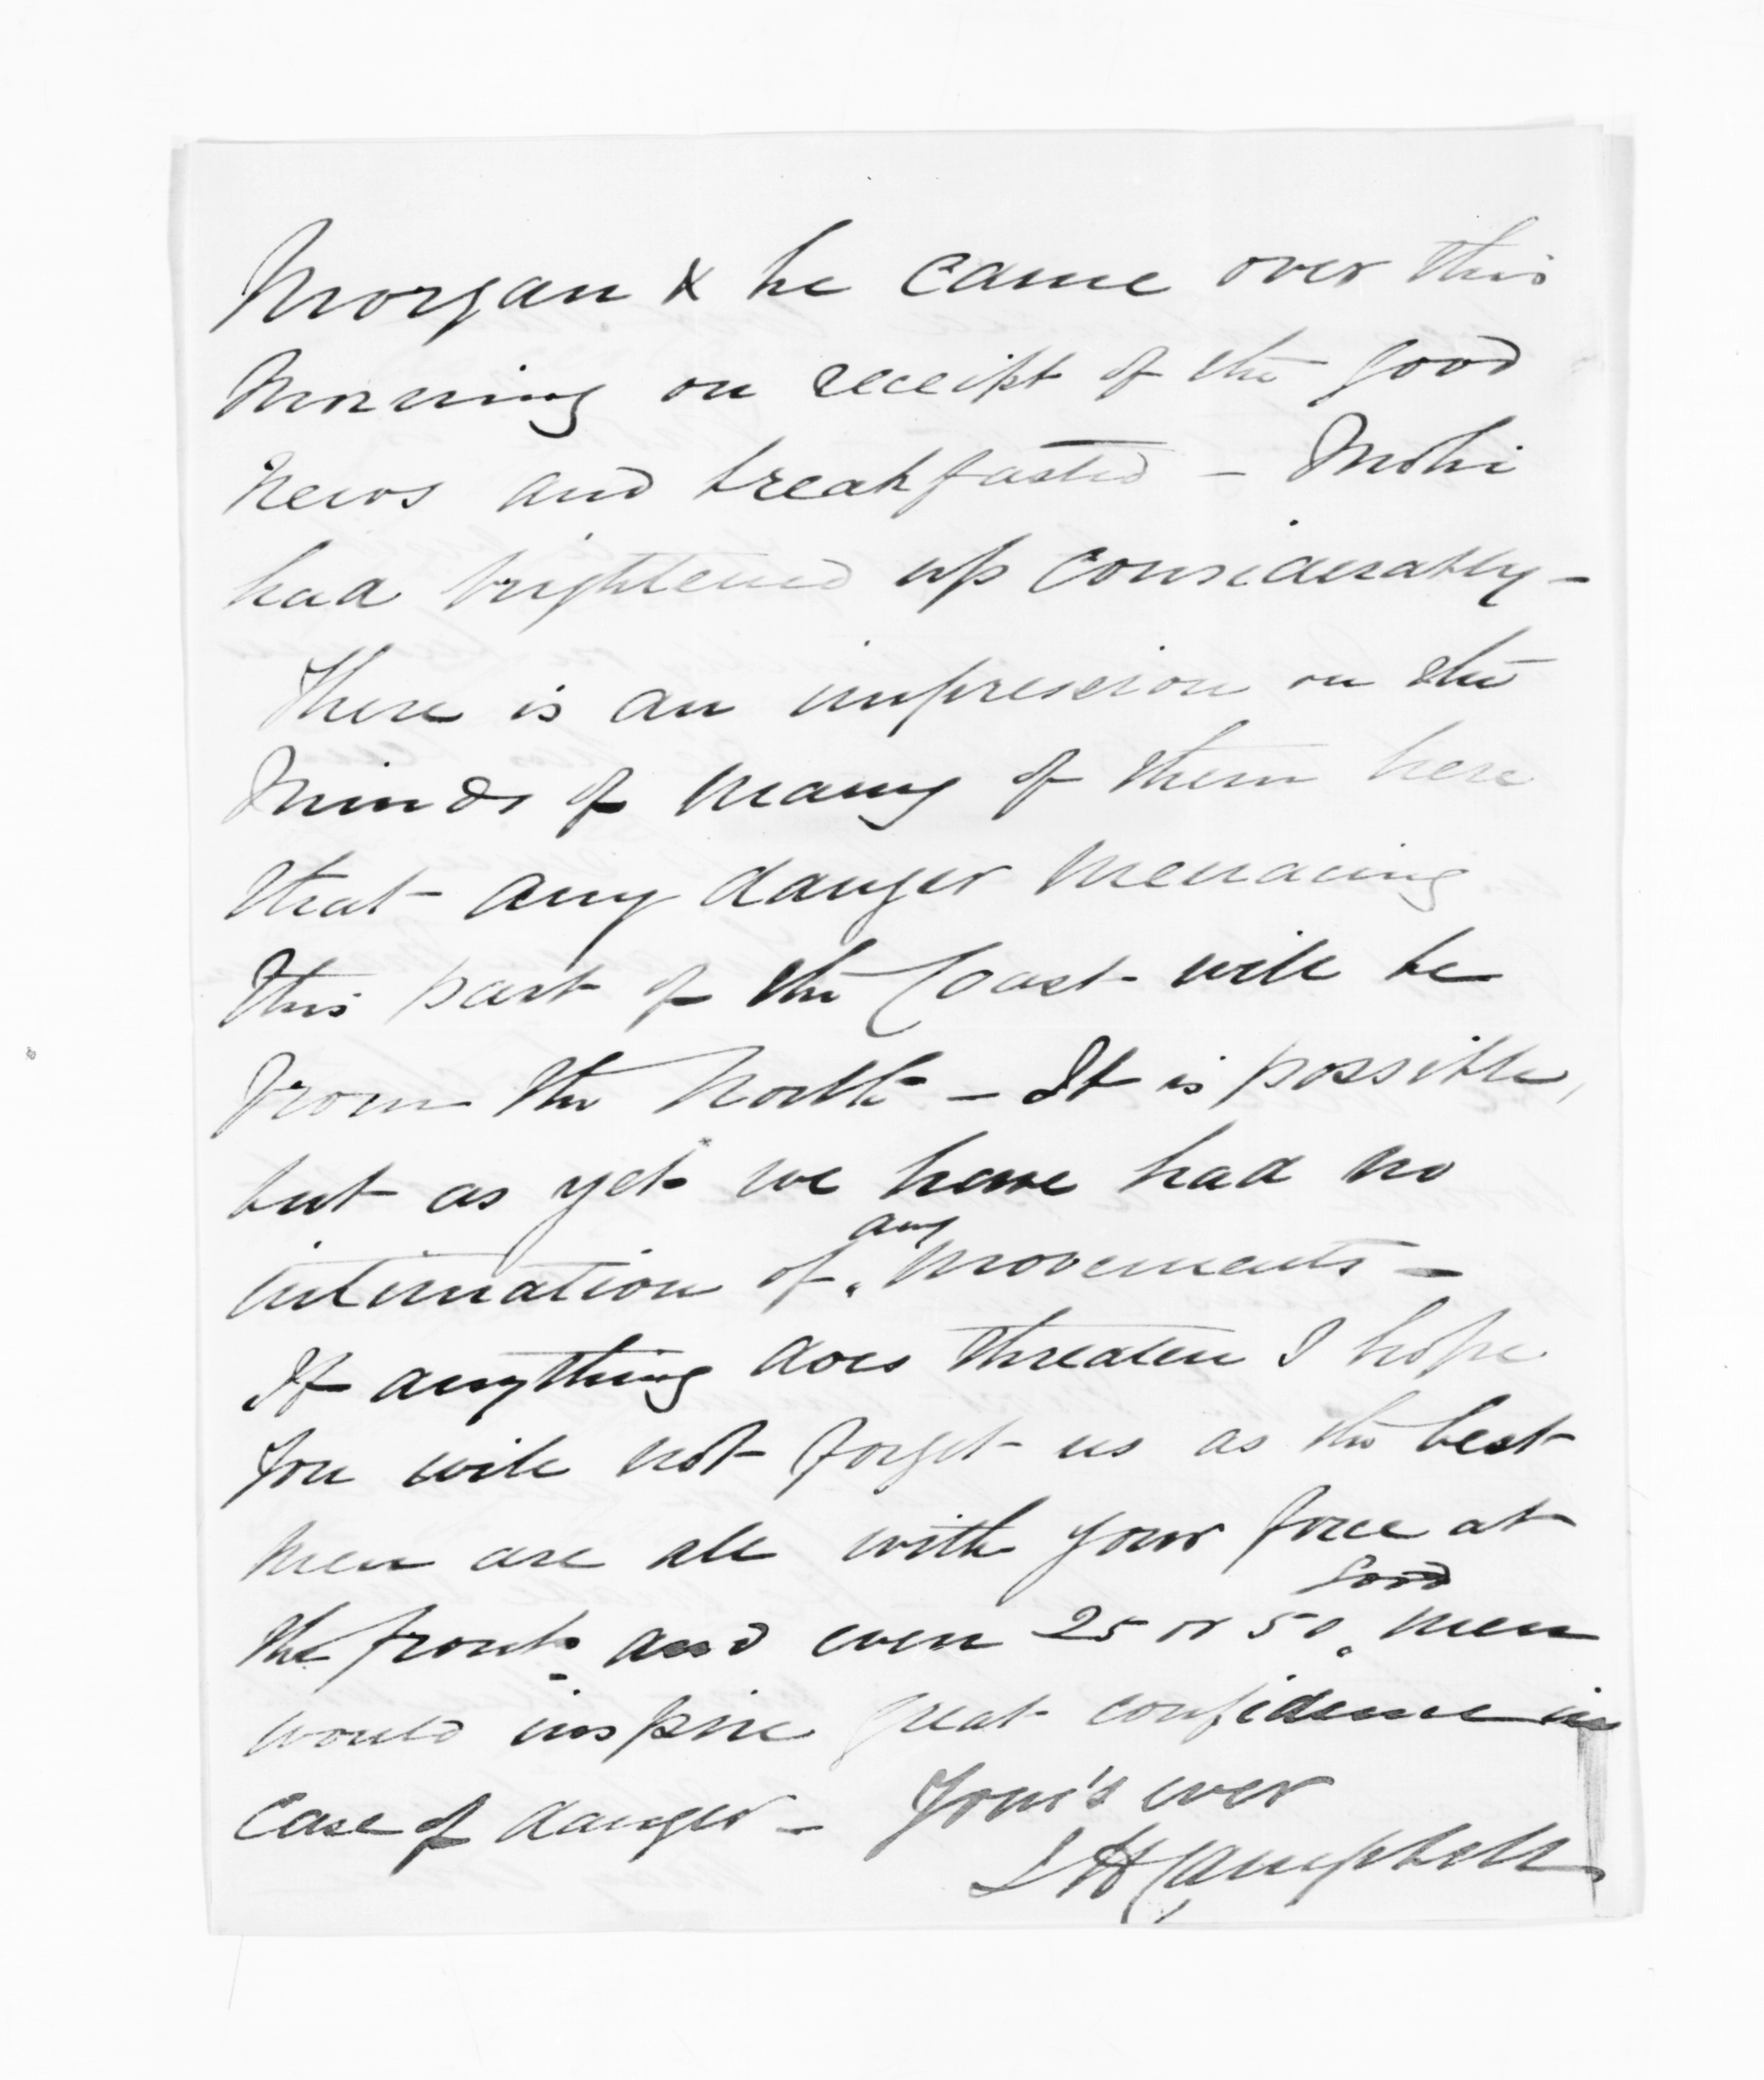 Morgan & he came over this
morning on receipt of the good
news and breakfasted - Mohi
had brightened up considerably -
There is an impression on the
minds of many of them here
that any danger menacing
this part of the Coast will be
from the North - It is possible,
but as yet we have had no
any
intimation of movements -
If anything does threaten I hope
you will not forget us as the best
men are all with your force at
good
the front and even 25 or 50 men
would inspire great confidence in
case of danger - Your's ever
Campbell